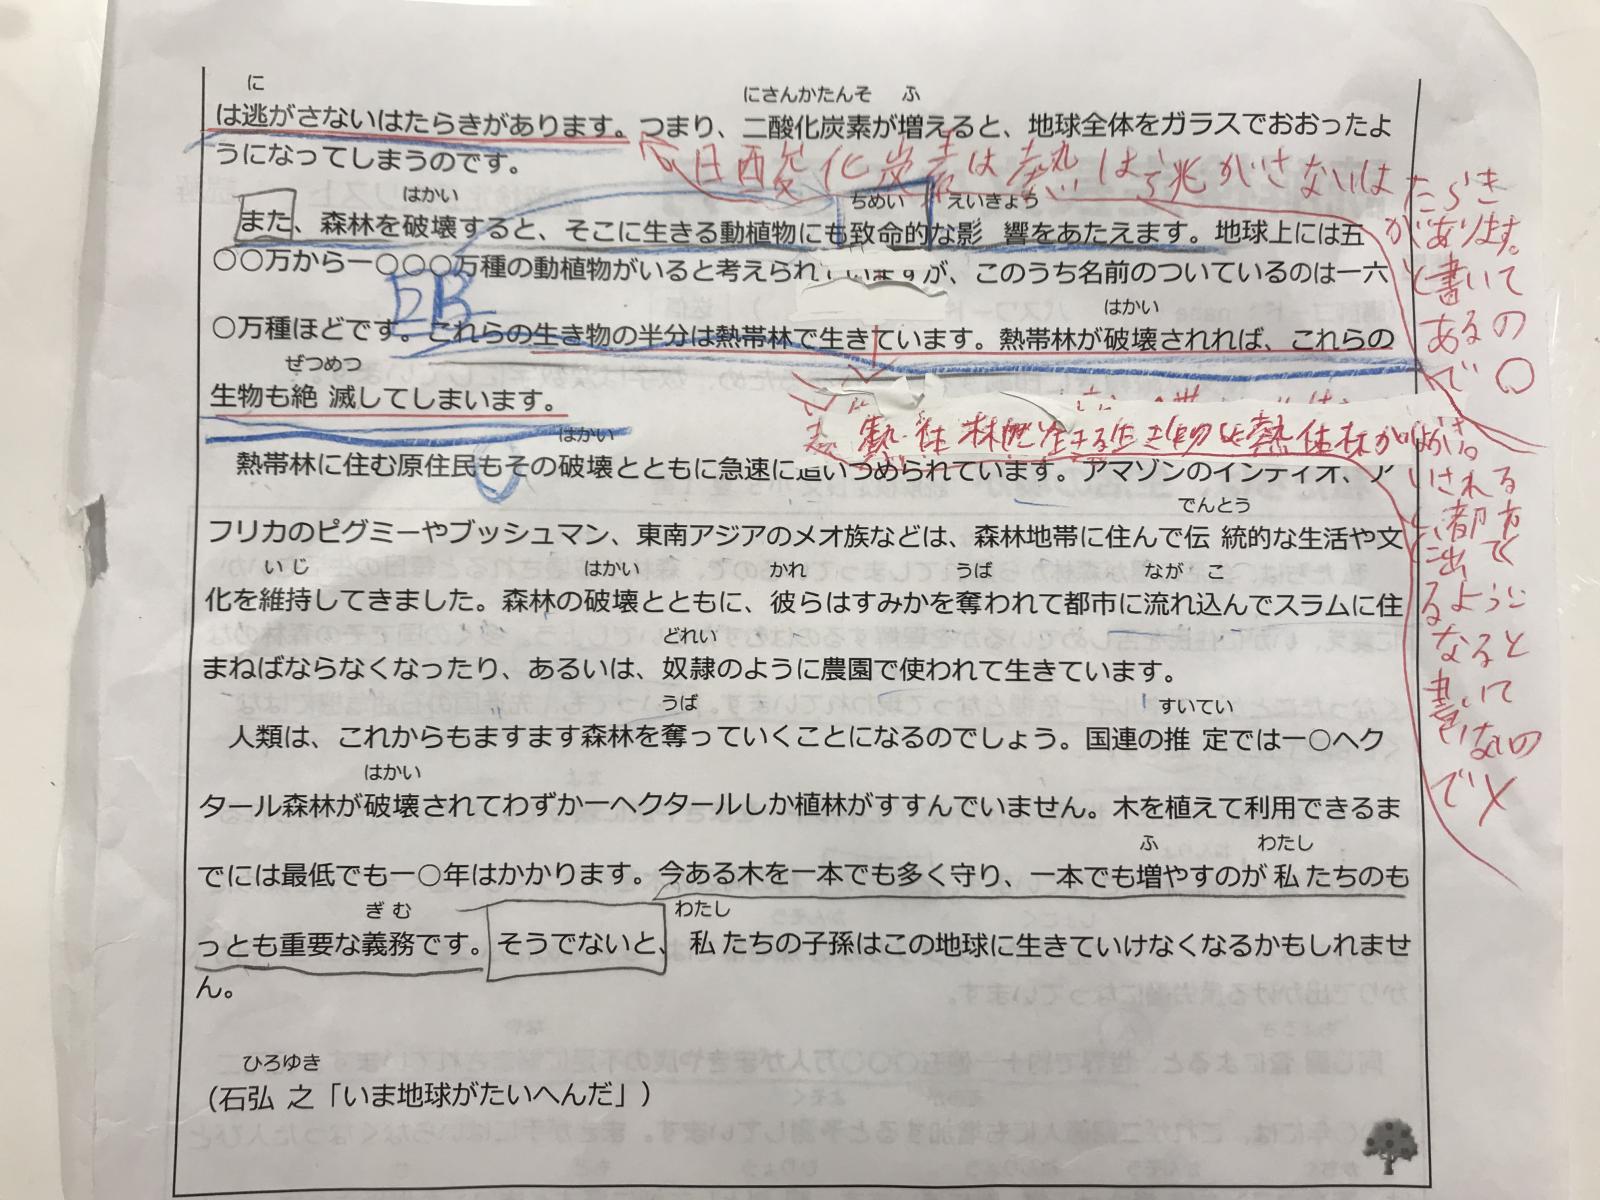 に
は逃がさないはたらきがあります。つまり、二酸化炭素が増えると、地球全体をガラスでおおったよ
にさんかたんそ ふ
うになってしまうのです。
化炭素は熱は逃がさないはたらき
があります。
と書いて
あるの
で○
はかい ちめい えいきょう
また、森林を破壊すると、そこに生きる動植物にも致命的な影響をあたえます。地球上には五
〇〇万から一〇〇〇万種の動植物がいると考えられていますが、このうち名前のついているのは一六
はかい
〇万種ほどです。これらの生き物の半分は熱帯林で生きています。熱帯林が破壊されれば、これらの
ぜつめつ
生物も絶滅してしまいます。
熱体林
熱体林が
される
と都市
に出て
るように
なると
書いて
ないの
で✕
はかい
熱帯林に住む原住民もその破壊とともに急速に追いつめられています。アマゾンのインディオ、ア
でんとう
フリカのピグミーやブッシュマン、東南アジアのメオ族などは、森林地帯に住んで伝統的な生活や文
いじ はかい かれ うば なが こ
化を維持してきました。森林の破壊とともに、彼らはすみかを奪われて都市に流れ込んでスラムに住
どれい
まねばならなくなったり、あるいは、奴隷のように農園で使われて生きています。
うば すいてい
人類は、これからもますます森林を奪っていくことになるのでしょう。国連の推定では一〇ヘク
はかい
タール森林が破壊されてわずか一ヘクタールしか植林がすすんでいません。木を植えて利用できるま
ふ わたし
でには最低でも一〇年はかかります。今ある木を一本でも多く守り、一本でも増やすのが私たちのも
ぎむ わたし
っとも重要な義務です。そうでないと、私たちの子孫はこの地球に生きていけなくなるかもしれませ
ん。
ひろゆき
（石弘之「いま地球がたいへんだ」）